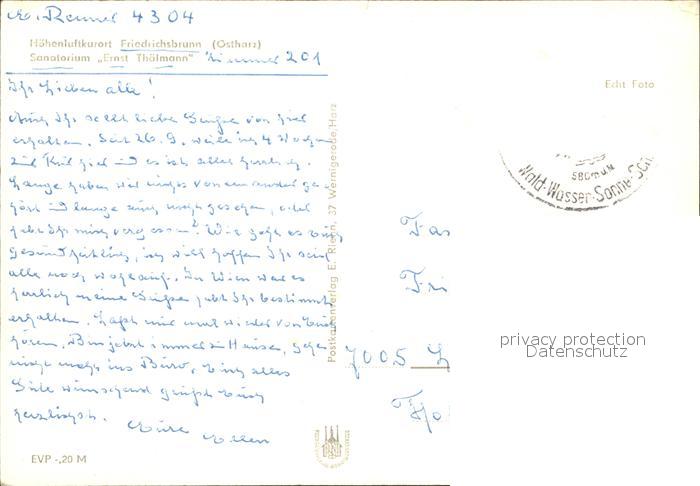 E. Renner 4304
Höhenluftkurort Friedrichsbrunn (Ostharz)
Sanatorium „Ernst Thälmann" Zimmer 201
Echt Foto
Ihr Lieben alle!
Auch Ihr sollt liebe Grüße von hier
erhalten. Seit 26.9. weile ich 4 Wochen
zur Kur hier und es ist alles herrlich.
Lange haben wir nichts voneinander ge-
hört und lange auch nicht gesehen, oder
habt Ihr mich vergessen? Wie geht es Euch
gesundheitlich, ich will hoffen Ihr seid
alle noch wohlauf. In Wien war es
herrlich meine Grüße habt Ihr bestimmt
erhalten. Laßt mir mal wieder von Euch
hören. Bin jetzt immer zu Hause, gehe
nicht mehr ins Büro. Euch alles
Gute wünschend grüßt Euch
herzlichst.
Eure Ellen
Postkartenverlag E. Riehn, 37 Wernigerode, Harz
580 m ü. N
Wald-Wasser-Sonne-Sch
Fa
Fri
7005 L
privacy protection
Datenschutz
EVP -,20 M